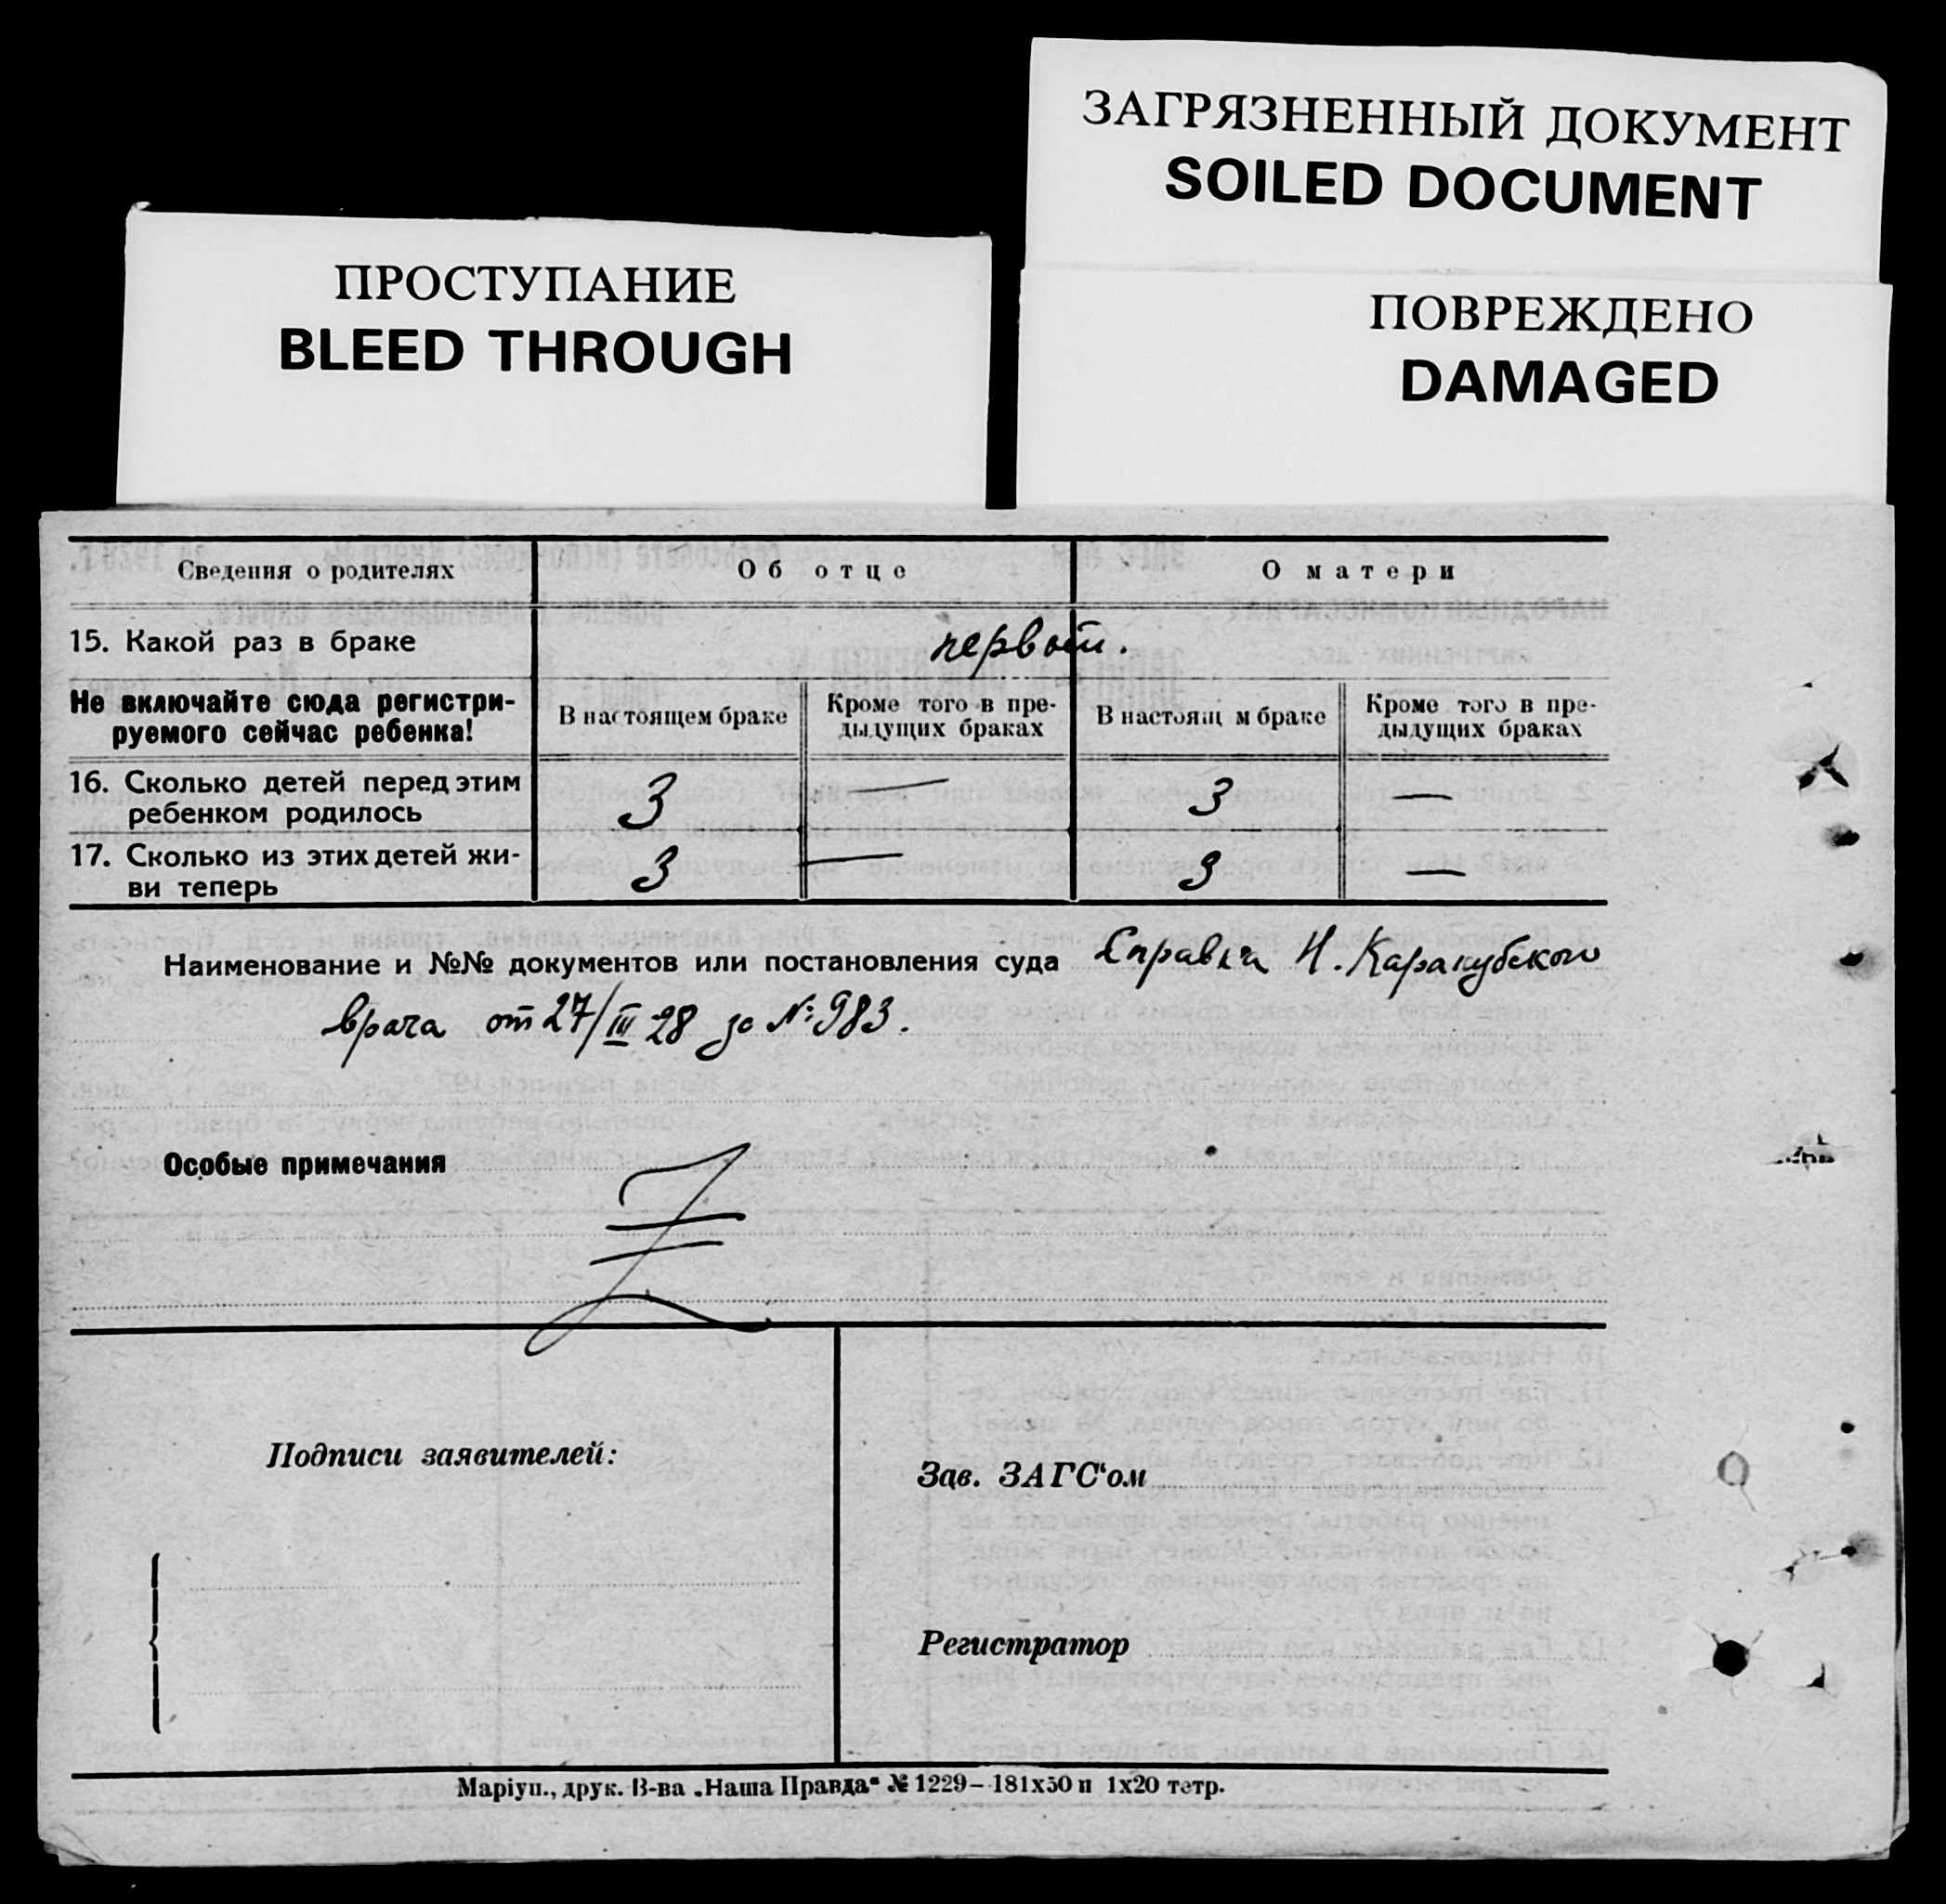 ЗАГРЯЗНЕННЫЙ ДОКУМЕНТ
SOILED DOCUMENT
ПРОСТУПАНИЕ
BLEED THROUGH
ПОВРЕЖДЕНО
DAMAGED
Сведения о родителях Об отце О матери
15. Какой раз в браке первом.
Не включайте сюда регистри-
руемого сейчас ребенка!
В настоящем браке
Кроме того в пре-
дыдущих браках
В настоящ м браке
Кроме того в пре-
дыдущих браках
16. Сколько детей перед этим
ребенком родилось 3 — 3 —
17. Сколько из этих детей жи-
ви теперь 3 — 3 —
Наименование и №№ документов или постановления суда Справка Н. Каракубского
врача от 27/III 28 за №983.
Особые примечания
Подписи заявителей:
Зав. ЗАГС‘ом
Регистратор
Маріуп., друк. В-ва „Наша Правда“ № 1229–181х50 и 1х20 тетр.